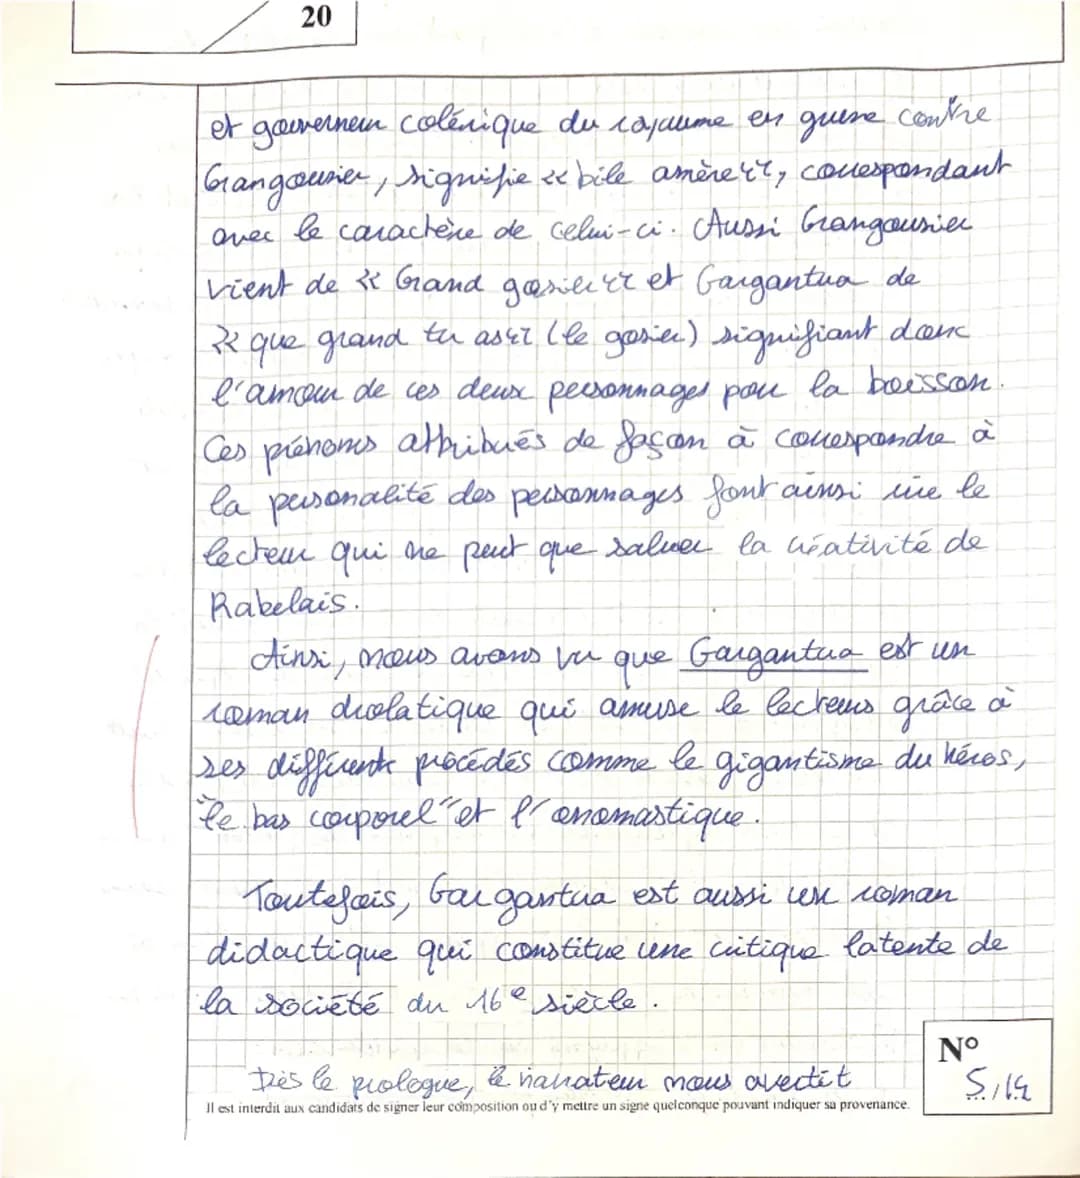 20
et gouverneur colérique du royaume en guerre contre
Grangousier, signifie « bile amère », correspondant
avec le caractère de celui-ci. Aussi Grangousier
vient de « Grand gosier » et Gargantua de
« que grand tu as » (le gosier) signifiant donc
l'amour de ces deux personnages pour la boisson.
Ces prénoms attribués de façon à correspondre à
la personalité des personnages font ainsi rire le
lecteur qui ne peut que saluer la créativité de
Rabelais.
Ainsi, nous avons vu que Gargantua est un
roman drolatique qui amuse le lecteurs grâce à
ses différents procédés comme le gigantisme du héros,
"le bas corporel" et l'onomastique.
Toutefois, Gargantua est aussi un roman
didactique qui constitue une critique latente de
la société du 16e siècle.
Dès le prologue, le narrateur nous avertit
Il est interdit aux candidats de signer leur composition ou d'y mettre un signe quelconque pouvant indiquer sa provenance.
N°